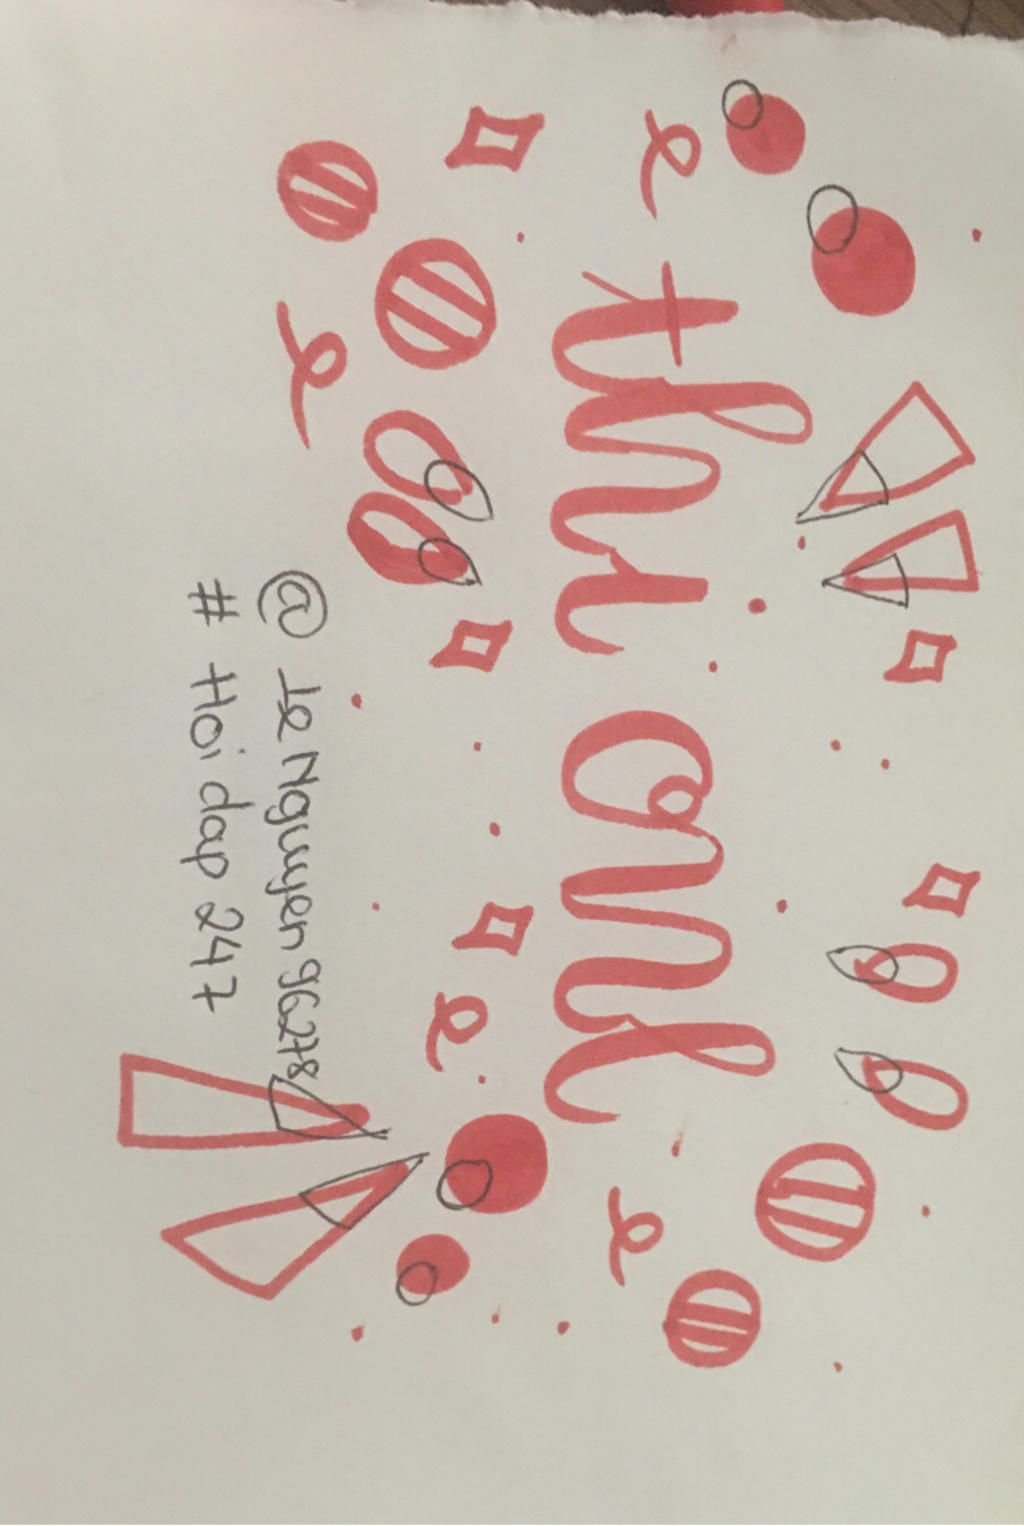 thi onl
@ LeNguyen96278
# Hoi dap 247